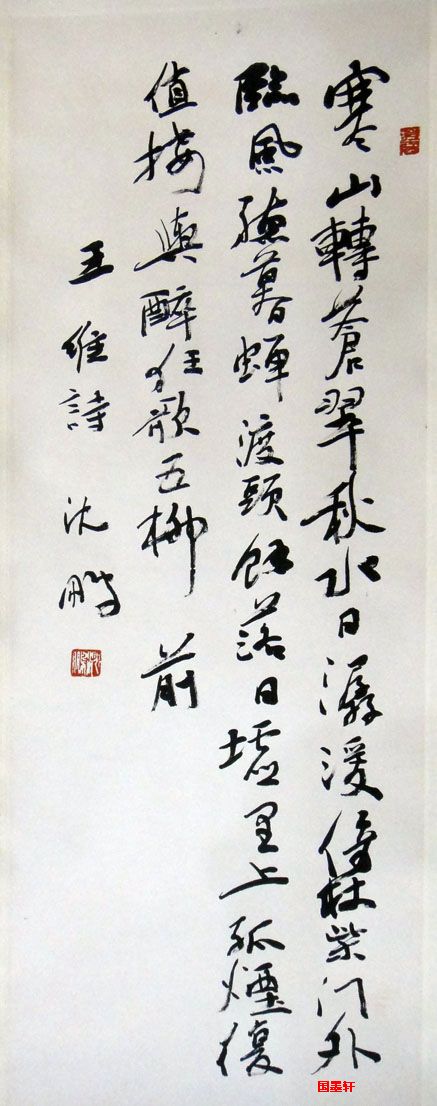 寒山轉蒼翠秋水日潺湲倚杖柴门外
臨風聽暮蝉渡頭餘落日墟里上孤煙復
值接輿醉狂歌五柳前
王維詩 沈鹏
国墨轩